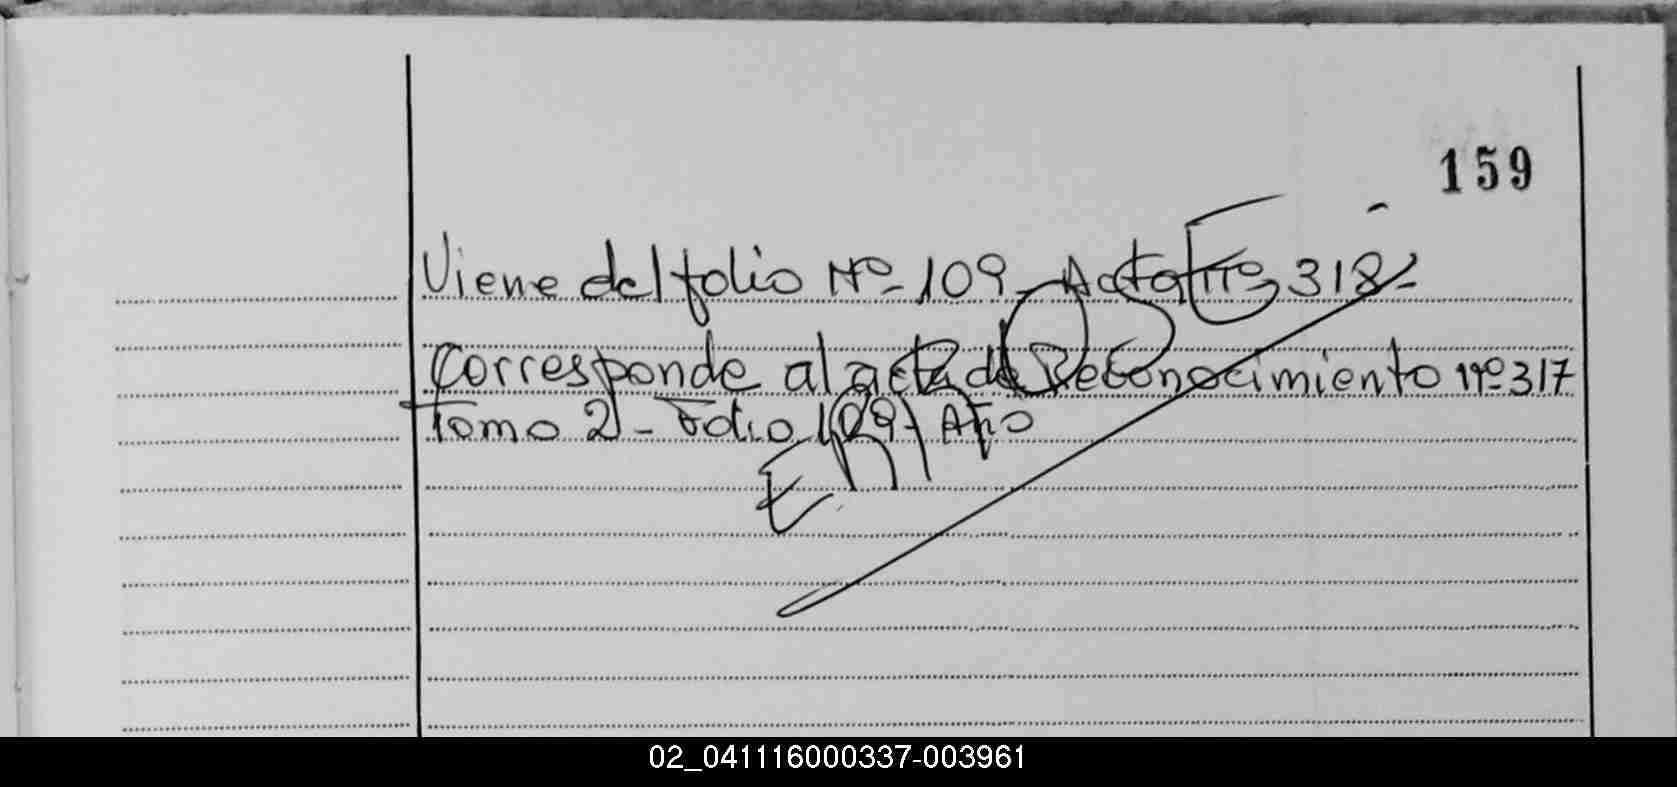 159
Viene del folio Nº- 109- Acta Nº 318-
Corresponde al acta de Reconocimiento nº 317
Tomo 2- Folio 109- Año
ERROSE
02_041116000337-003961